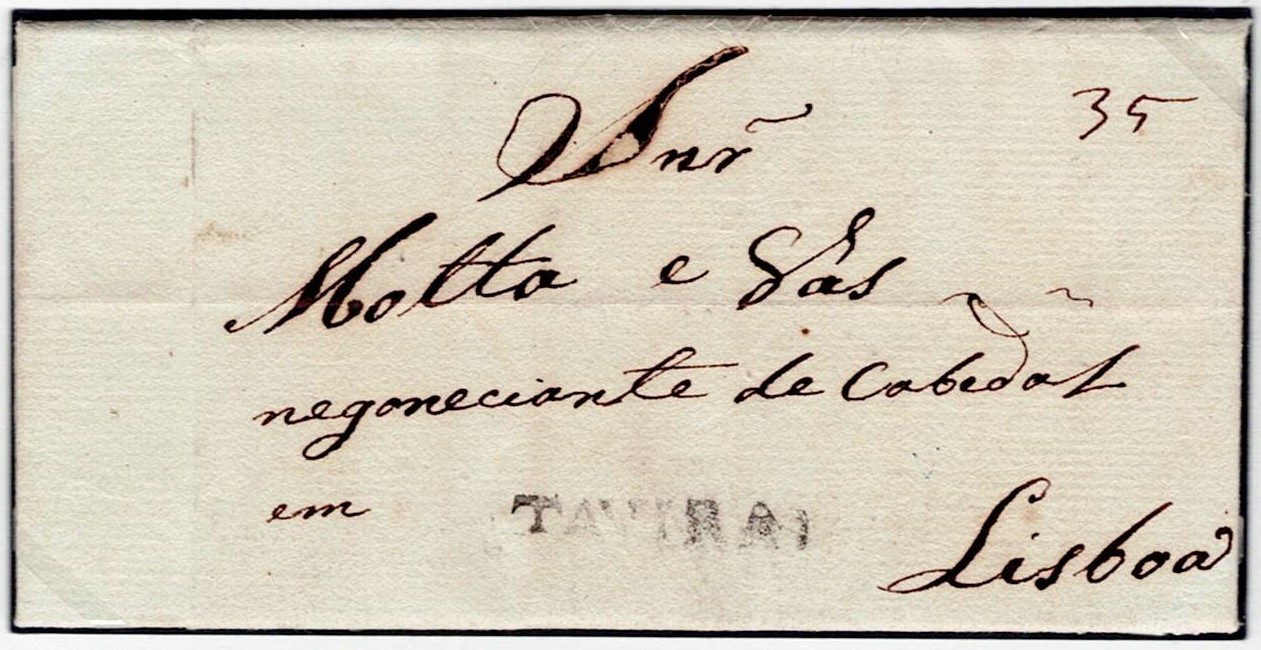 35
Snr
Motta e Vas
negoneciante de Cabedal
em
TAVIRA
Lisboa